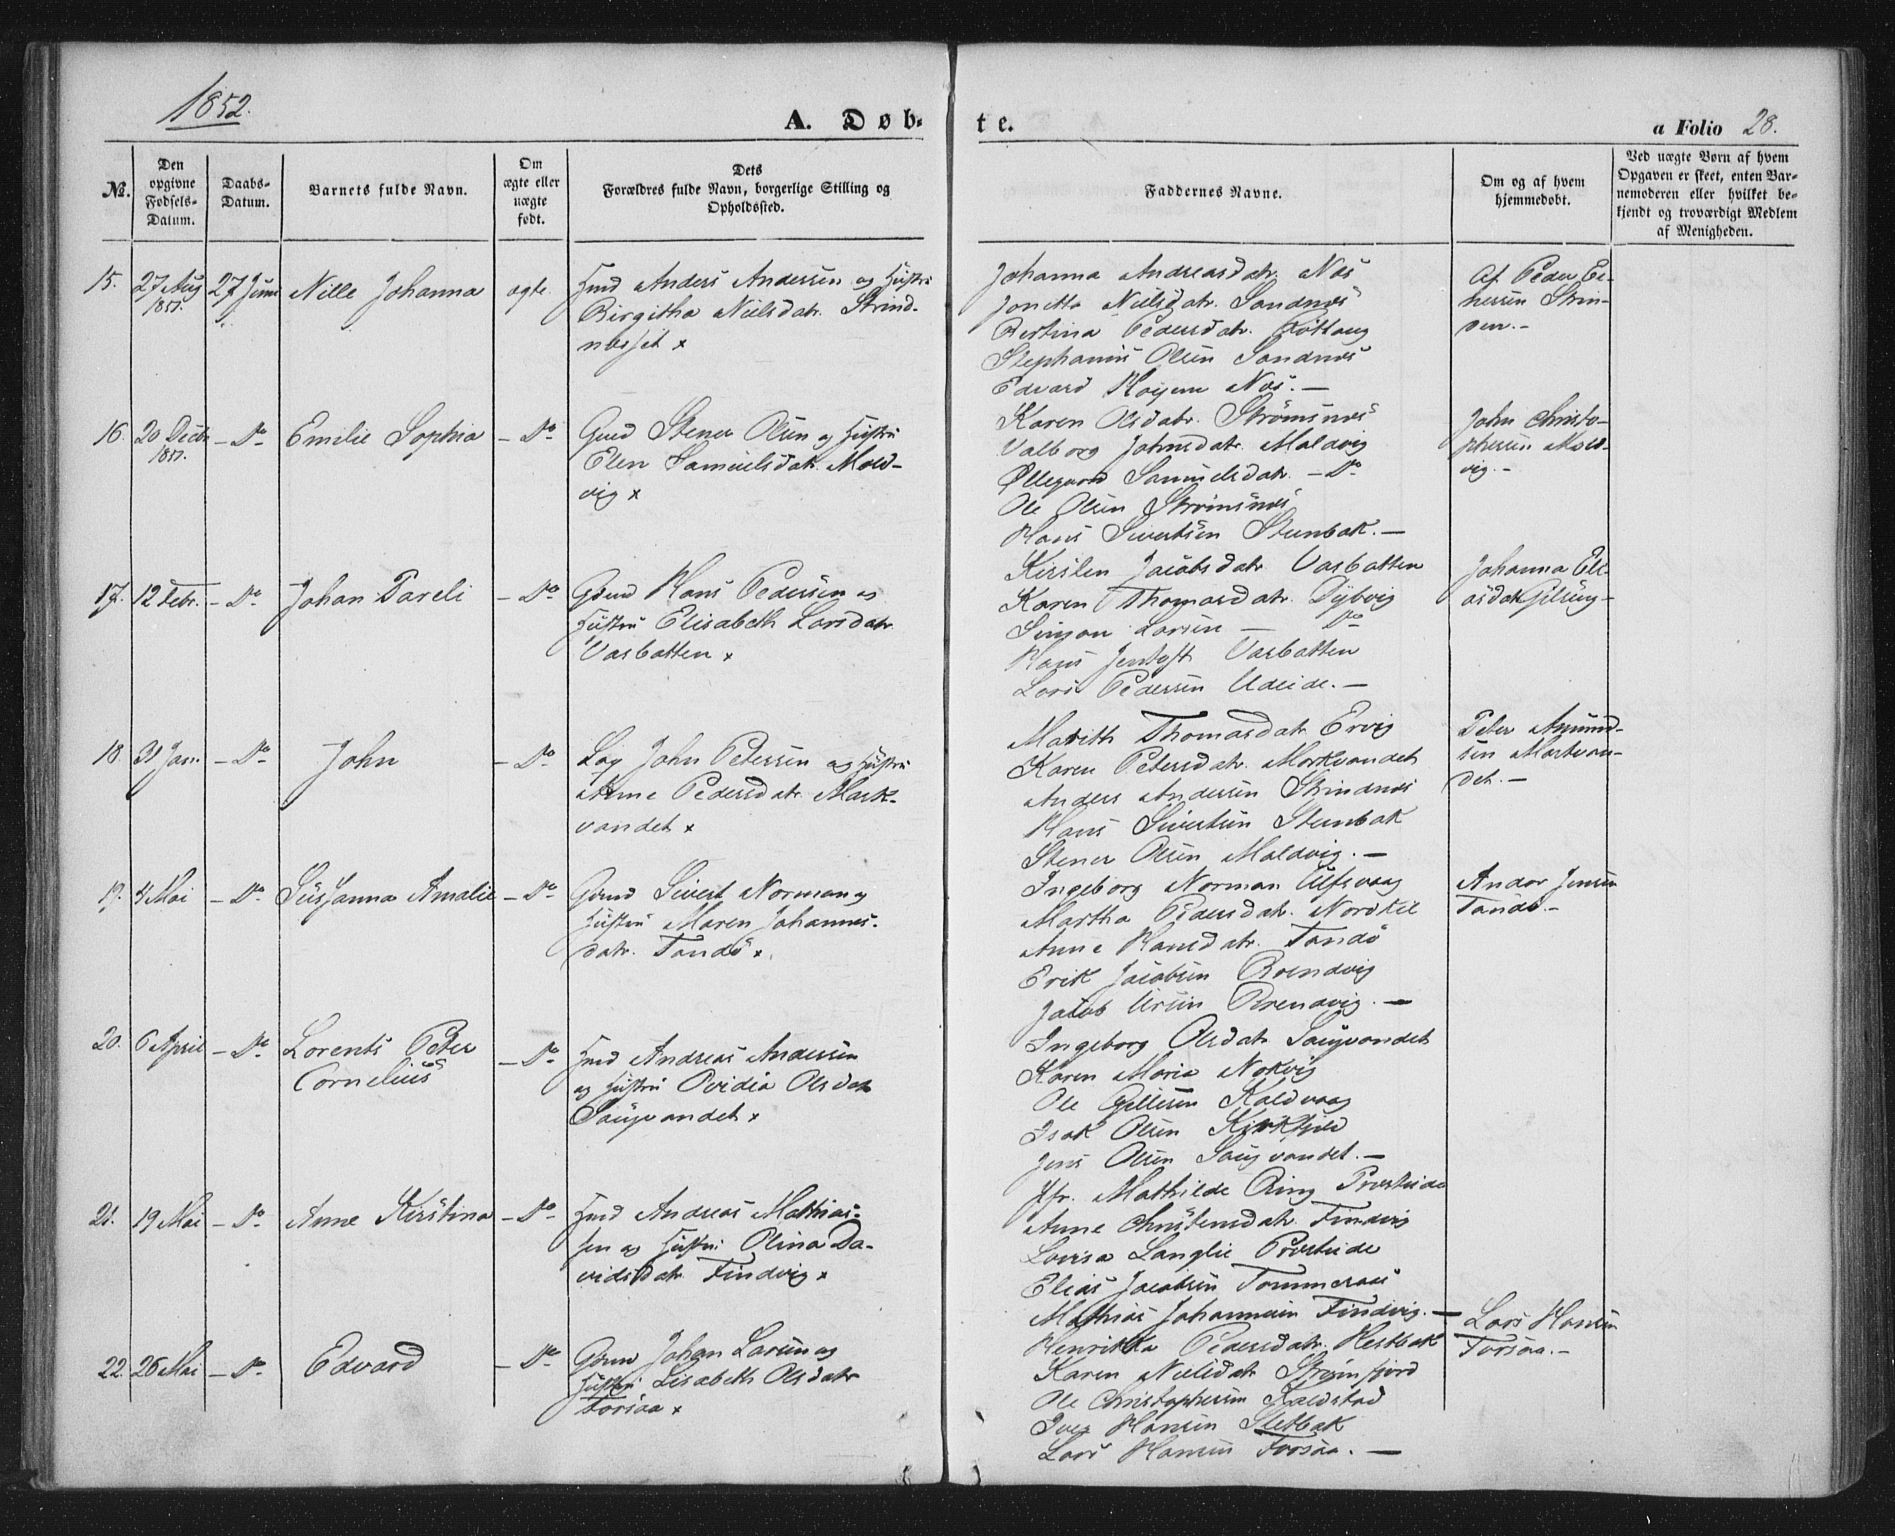 1852.
A. Døb-
te.
a Folio 28.
№.
Den
opgivne
Fødsels-
Datum.
Daabs-
Datum.
Barnets fulde Navn.
Om
ægte eller
uægte
født.
Dets
Forældres fulde Navn, borgerlige Stilling og
Opholdssted.
Faddernes Navne.
Om og af hvem
hjemmedøbt.
Ved uægte Børn af hvem
Opgaven er skeet, enten Bar-
nemoderen eller hvilket be-
kjendt og troværdigt Medlem
af Menigheden.
15. 27 Aug 1851. 27 Juni Nille Johanna ægte
Hmd Anders Andersen og Hustru
Birgitha Nielsdatr. Strind-
næsset x
Johanna Andreasdatr. Næs
Jonetta Nielsdatr. Sandnæs
Bertina Pedersdatr.
Stephanus Olsen Sandnæs
Edvard Næs. —
Af Peder
16. 20 Decbr 1851. - Do - Emilie Sophia - Do
Gmd Stener Olsen og Hustru
Elen Samuelsdatr. Mold-
vig x
Karen Olsdatr. Strømsnæs
Valborg Johnsdatr. Moldvig
Øllegaard Samuelsdatr. - Do
Ole Olsen Strømsnæs
Hans Sivertsen Stenbak. —
John Christo-
phersen Mold-
vig. -
17. 12 Febr. - Do - Johan Pareli - Do
Gdmd Hans Pedersen og
Hustru Elisabeth Larsdatr.
Vasbotten x
Kirsten Jacobsdatr Vasbotten
Karen Thomasdatr. Dybvig
Simon Larsen — Do
Hans Jentoft Vasbotten
Lars Pedersen —
Johanna Eli-
18. 31 Jan. - Do - John - Do
Løg John Petersen og Hustru
Anne Pedersdatr. Mork-
vandet x
Marith Thomasdatr Ervig
Karen Petersdatr. Morkvandet
Anders Andersen Strindnæs
Hans Sivertsen Stenbak
Stener Olsen Moldvig. —
Peter Amund-
sen Morkvan-
det. —
19. 4 Mai - Do - Susanna Amalie - Do -
Gdmd Sivert Norman og
Hustru Maren Johannes-
datr. Tandø x.
Ingeborg Norman Ulfsvaag
Martha Pedersdatr. Nordkil
Anne Hansdatr. Tandø
Erik Jacobsen
Jacob —
Andor Jensen
Tandø. -
20. 6 April - Do - Lorents Peter
Cornelius - Do -
Hmd Andreas Andersen
og Hustru Ovidia Olsdatr
Saugvandet x
Ingeborg Olsdatr Saugvandet
Karen Maria Nokvig
Ole Kaldvaag
Isak Olsen Kirkfjeld
Jens Olsen Saugvandet. —
21. 19 Mai - Do - Anne Kirstina - Do -
Hmd Andreas Mathias-
sen og Hustru Olina Da-
vidsdatr Findvig x
Jfr. Mathilde Ring Præsteide
Anne Christensdatr. Findvig
Lovisa Langlie Præsteide
Elias Jacobsen Tommeraas
Mathias Johannesen Findvig. —
22. 26 Mai - Do - Edvard - Do
Gdmd Johan Larsen og
Hustru Lisabeth Olsdatr
Forsaa x
Henrikka Pedersdatr. Hestbak
Karen Nielsdatr Strømfjord
Ole Christophersen Kaldstad
Iver Hansen Sletbak
Lars Hansen Forsaa. —
Lars Hansen
Forsaa. -